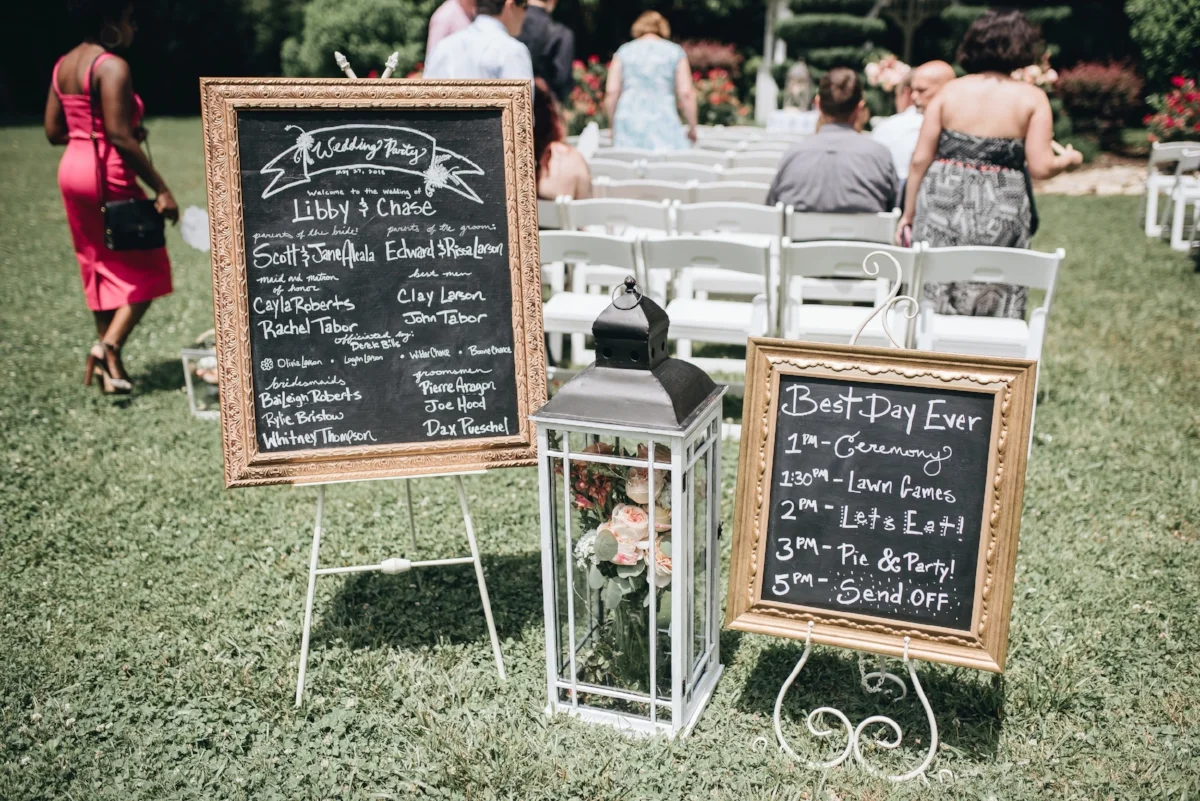 Wedding Party
May 27, 2018
Welcome to the wedding of
Libby & Chase
parents of the bride:
Scott & Jane Akala
maid and matron
of honor
Cayla Roberts
Rachel Tabor
parents of the groom:
Edward & Rissa Larson
best men
Clay Larson
John Tabor
officiated by:
Derek Bills
Olivia Larson • Logan Larson • Wilder Chance • Bonnie Chance
bridesmaids
Baileigh Roberts
Rylie Bristow
Whitney Thompson
groomsmen
Pierre Aragon
Joe Hood
Dax Pueschel
Best Day Ever
1PM - Ceremony
1:30PM - Lawn Games
2PM - Let's Eat!
3PM - Pie & Party!
5PM - Send OFF